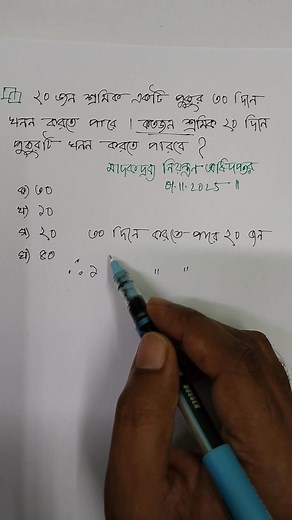 ২০ জন শ্রমিক একটি পুকুর ৩০ দিনে
খনন করতে পারে । কতজন শ্রমিক ২০ দিনে
পুকুরটি খনন করতে পারবে ?
মাদকদ্রব্য নিয়ন্ত্রণ অধিদপ্তর
2025 "
ক) ৩০
খ) ১০
গ) ২০ ৩০ দিনে করতে পারে ২০ জন
ঘ) ৪০
∴ ১ " "